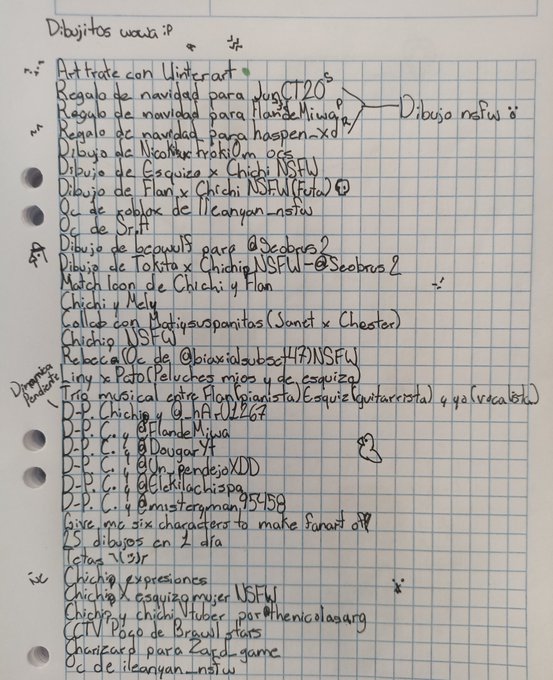 Dibujitos wowa :P
Art trate con Winterart
Regalo de navidad para JunCT20
Regalo de navidad para FlandeMiwa
Regalo de navidad Para haspen_xd
Dibujo nsfw
Dibujo de ocs
Dibujo de Esquizo x Chichi NSFW
Dibujo de Flan x Chichi NSFW (Futa)
Oc de roblox de ileanyan_nsfw
Oc de Sr.A
Dibujo de beowulf para @Seobrus2
Dibujo de Tokita x Chichip NSFW - @Seobrus2
Match Icon de Chichi y Flan
Chichi y Mely
Collab con Matiysuspanitas (Janet x Chester)
Chichip NSFW
Rebeca (Oc de @biaxialsubset47) NSFW
Liny x Pato (Peluches mios y de esquizo)
Trio musical entre Flan (pianista) Esquiz (guitarrista) y yo (vocalista)
Dinamica Pendiente
D-P. Chichip y @_hAr01267
D-P. C. y @FlandeMiwa
D-P. C. y @DougarYt
D-P. C. y @Un_pendejoXDD
D-P. C. y @Elekilachispa
D-P. C. y @misteryman95458
Give me six characters to make fanart off
25 dibujos en 1 día
Chichip expresiones
Chichip X esquizo mujer NSFW
Chichip y chichi Vtuber por @thenicolasarg
CCTV Poco de Brawl stars
Charizard para Zard_game
Oc de ileanyan_nsfw